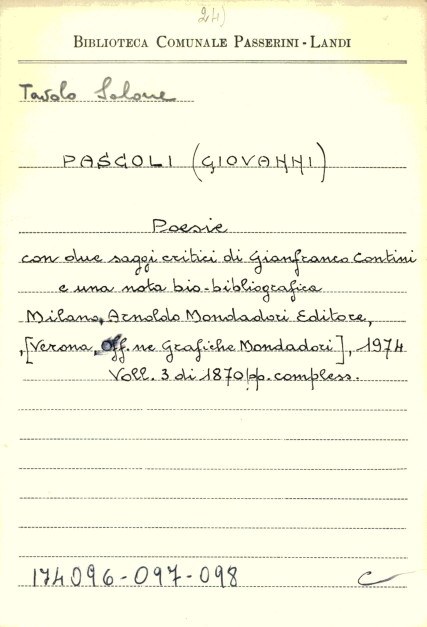 24)
BIBLIOTECA COMUNALE PASSERINI-LANDI
Tavolo Salone
PASCOLI (GIOVANNI)
Poesie
con due saggi critici di Gianfranco Contini
e una nota bio-bibliografica
Milano, Arnoldo Mondadori Editore,
[Verona, Off.ne Grafiche Mondadori], 1974
Voll. 3 di 1870 pp. compless.
174096-097-098 C